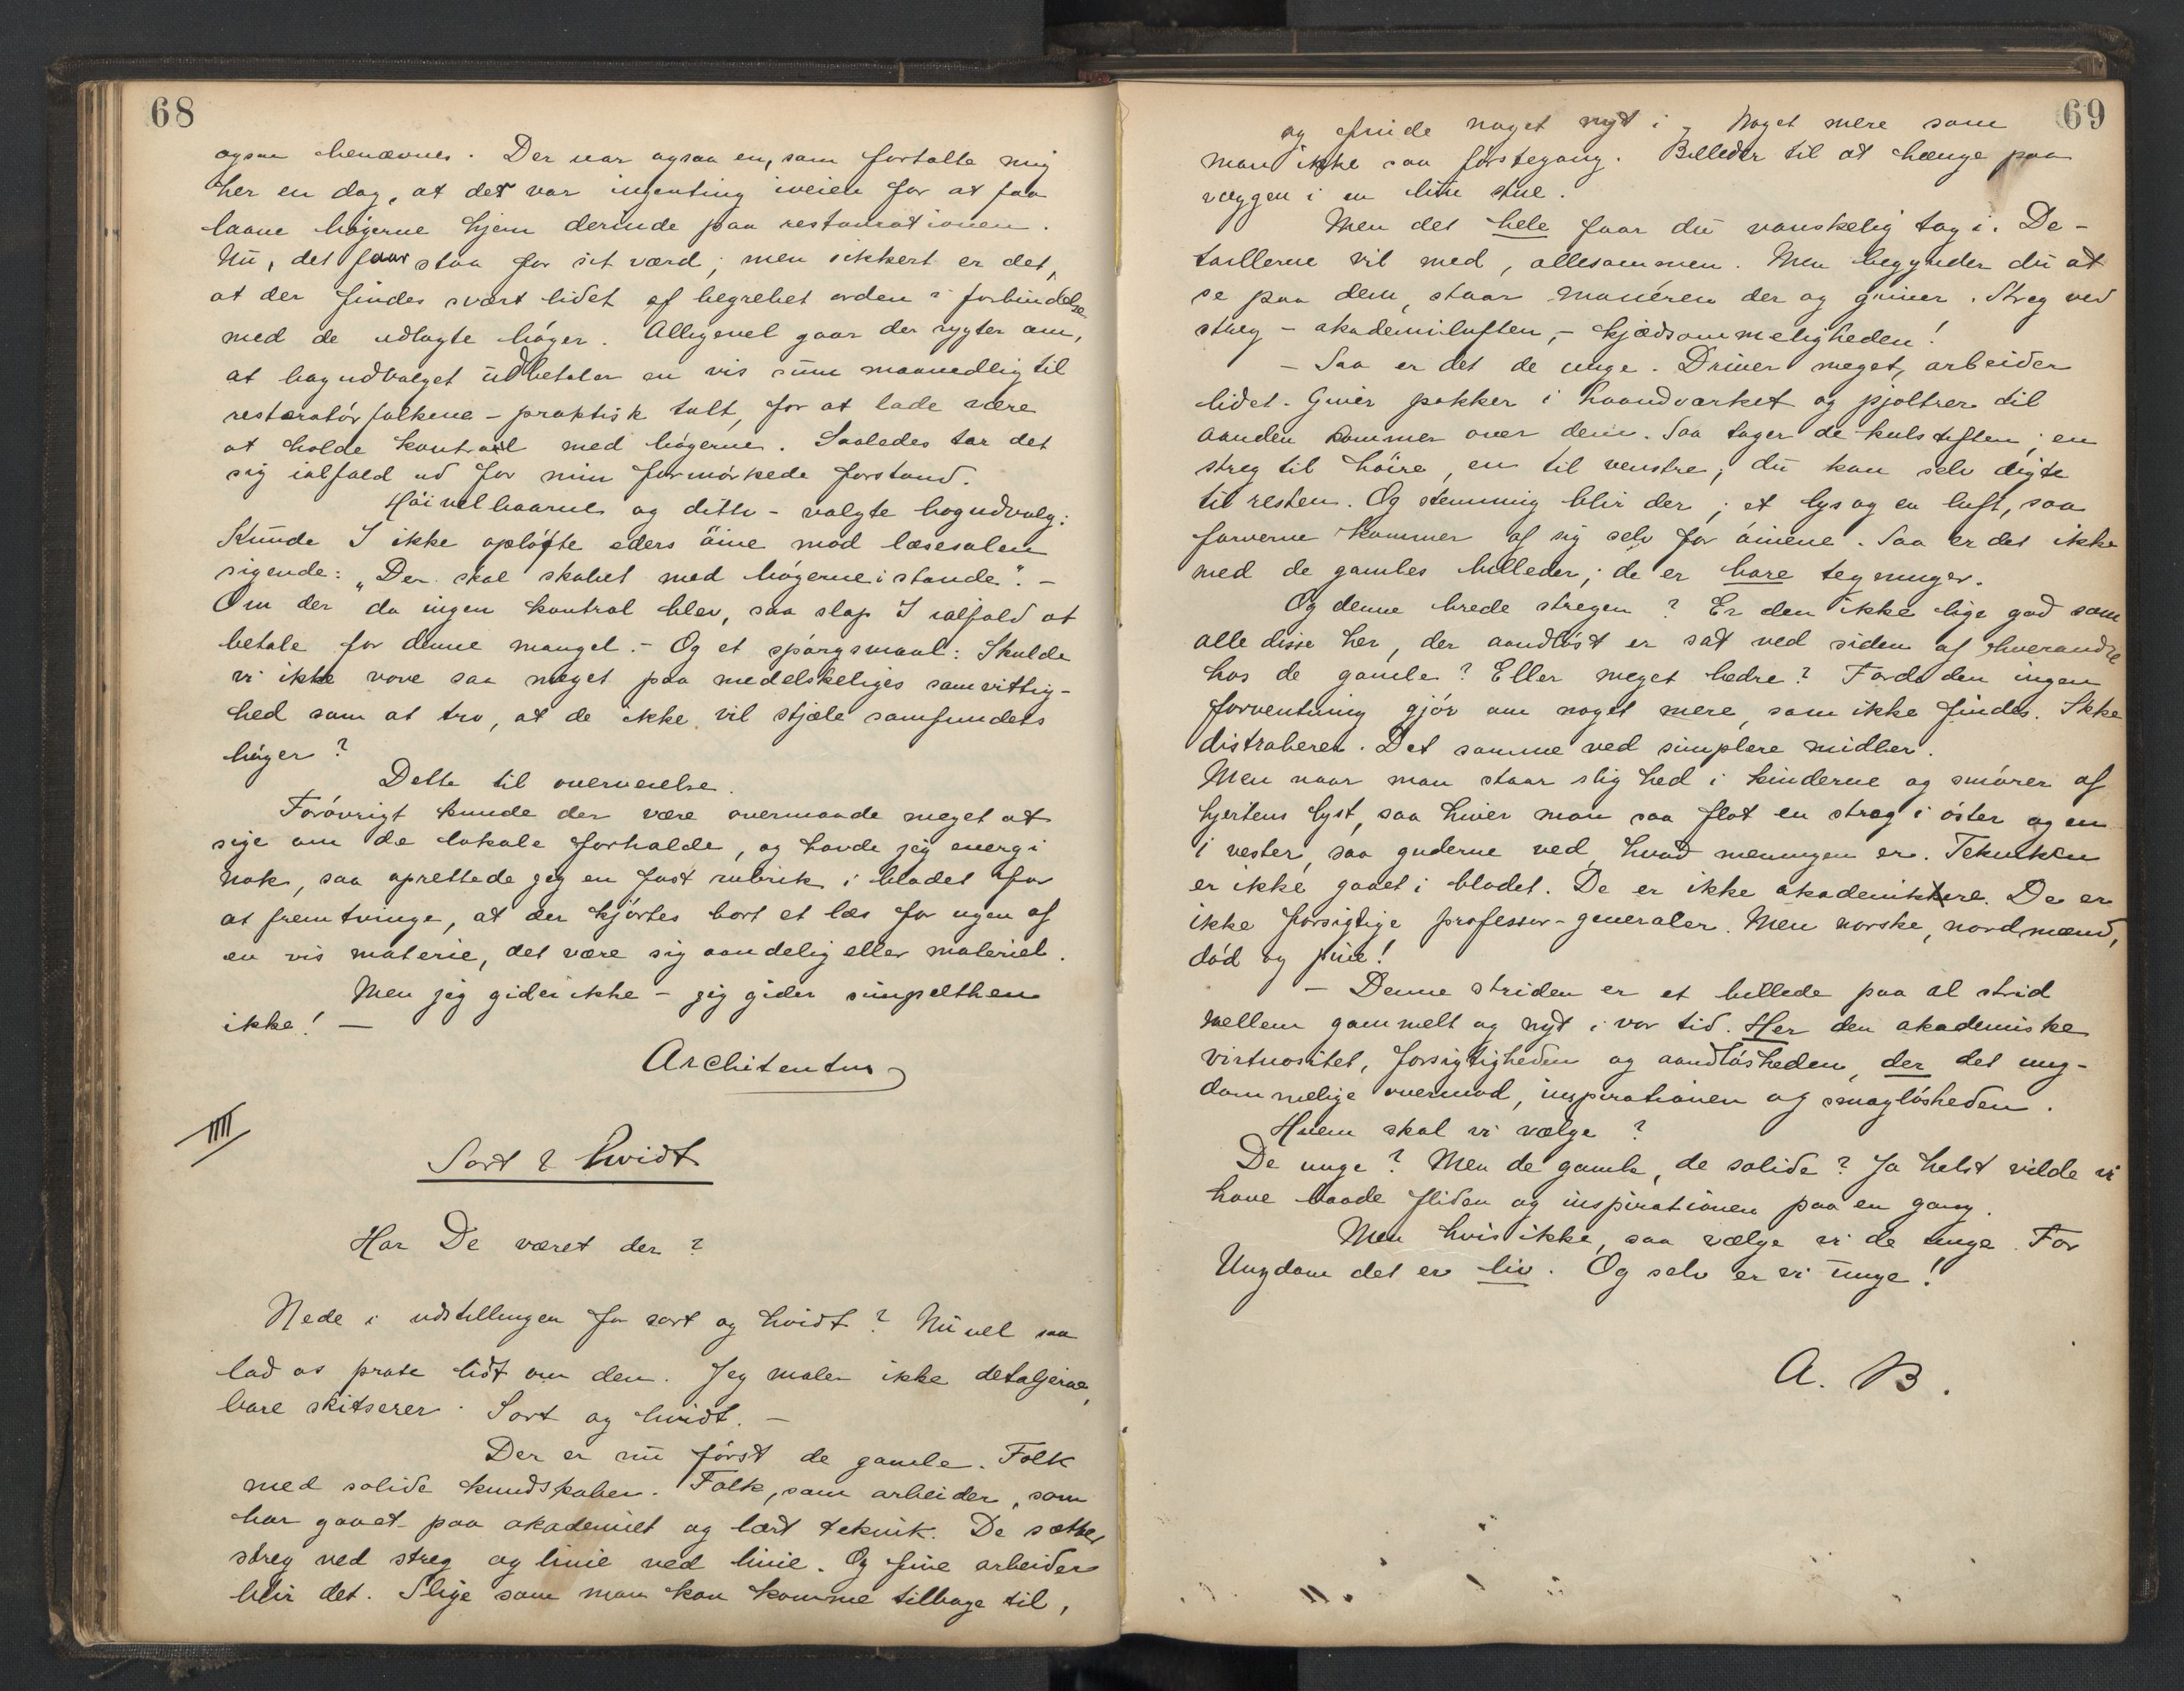 68
ogsaa benævnes. Der var ogsaa en, som fortalte mig
her en dag, at det var ingenting iveien for at faa
laane bøgerne hjem derinde paa restaurationen.
Nu, det faar staa for sit værd; men sikkert er det,
at der findes svært lidet af begrebet orden i forbindelse
med de udlagte bøger. Alligevel gaar der rygter om,
at bogudvalget udbetaler en vis sum maanedlig til
restaratørfolkene – praktisk talt, for at lade være
at holde kontroll med bøgerne. Saaledes tar det
sig ialfald ud for min formørkede forstand.
Høivelbaarne og ditto-valgte bogudvalg:
Kunde I ikke opløfte eders øine mod læsesalen
sigende: „Der skal skabet med bøgerne i stande". –
Om der da ingen kontrol blev, saa slap I ialfald at
betale for denne mangel. – Og et spørgsmaal: Skulde
vi ikke vove saa meget paa medelskeliges samvittig-
hed som at tro, at de ikke vil stjæle samfundets
bøger?
Dette til overveielse.
Forøvrigt kunde der være overmaade meget at
sige om de lokale forholde, og havde jeg energi
nok, saa oprettede jeg en fast rubrik i bladet for
at fremtvinge, at der kjørtes bort et læs for ugen af
en vis materie, det være sig aandelig eller materiel.
Men jeg gider ikke – jeg gider simpelthen
ikke! –
Architentus
IIII
Sort & hvidt
Har De været der?
Nede i udstillingen for sort og hvidt? Nuvel saa
lad os prate lidt om den. Jeg maler ikke detaljerne,
bare skitserer. Sort og hvidt. –
Der er nu først de gamle. Folk
med solide kundskaber. Folk, som arbeider, som
har gaaet paa akademiet og lært teknik. De sætter
streg ved streg og linie ved linie. Og fine arbeider
blir det. Slige som man kan komme tilbage til,
69
og finde noget nyt i, noget mere som
man ikke saa førstegang. Billeder til at hænge paa
væggen i en liten stue.
Men det hele faar du vanskelig tag i. De-
taillerne vil med, allesammen. Men begynder du at
se paa dem, staar manéren der og griner. Streg ved
streg – akademiluften, – kjædsommeligheden!
– Saa er det de unge. Driver meget, arbeider
lidet. Giver pokker i haandværket og pjoltrer til
aanden kommer over dem. Saa tager de kulstiften; en
streg til høire, en til venstre; du kan selv digte
til resten. Og stemning blir der; et lys og en luft, saa
farverne kommer af sig selv for øinene. Saa er det ikke
med de gamles billeder; de er bare tegninger.
Og denne brede stregen? Er den ikke lige god som
alle disse her, der aandløst er sat ved siden af hverandre
hos de gamle? Eller meget bedre? Fordi den ingen
forventning gjør om noget mere, som ikke findes. Ikke
distraherer. Det samme ved simplere midler.
Men naar man staar slig hed i kinderne og smører af
hjertens lyst, saa hiver man saa flot en streg i øster og en
i vester, saa guderne ved, hvad meningen er. Tekniken
er ikke gaaet i blodet. De er ikke akademikere. De er
ikke forsigtige professor-generaler. Men norske, nordmænd,
død og pine!
– Denne striden er et billede paa al strid
mellem gammelt og nyt i vor tid. Her den akademiske
virtuositet, forsigtigheden og aandløsheden, der det ung-
dommelige overmod, inspirationen og smagløsheden.
Hvem skal vi vælge?
De unge? Men de gamle, de solide? Ja helst vilde vi
have baade fliden og inspirationen paa en gang.
Men hvis ikke, saa vælge vi de unge. For
Ungdom det er liv. Og selv er vi unge!
A. B.